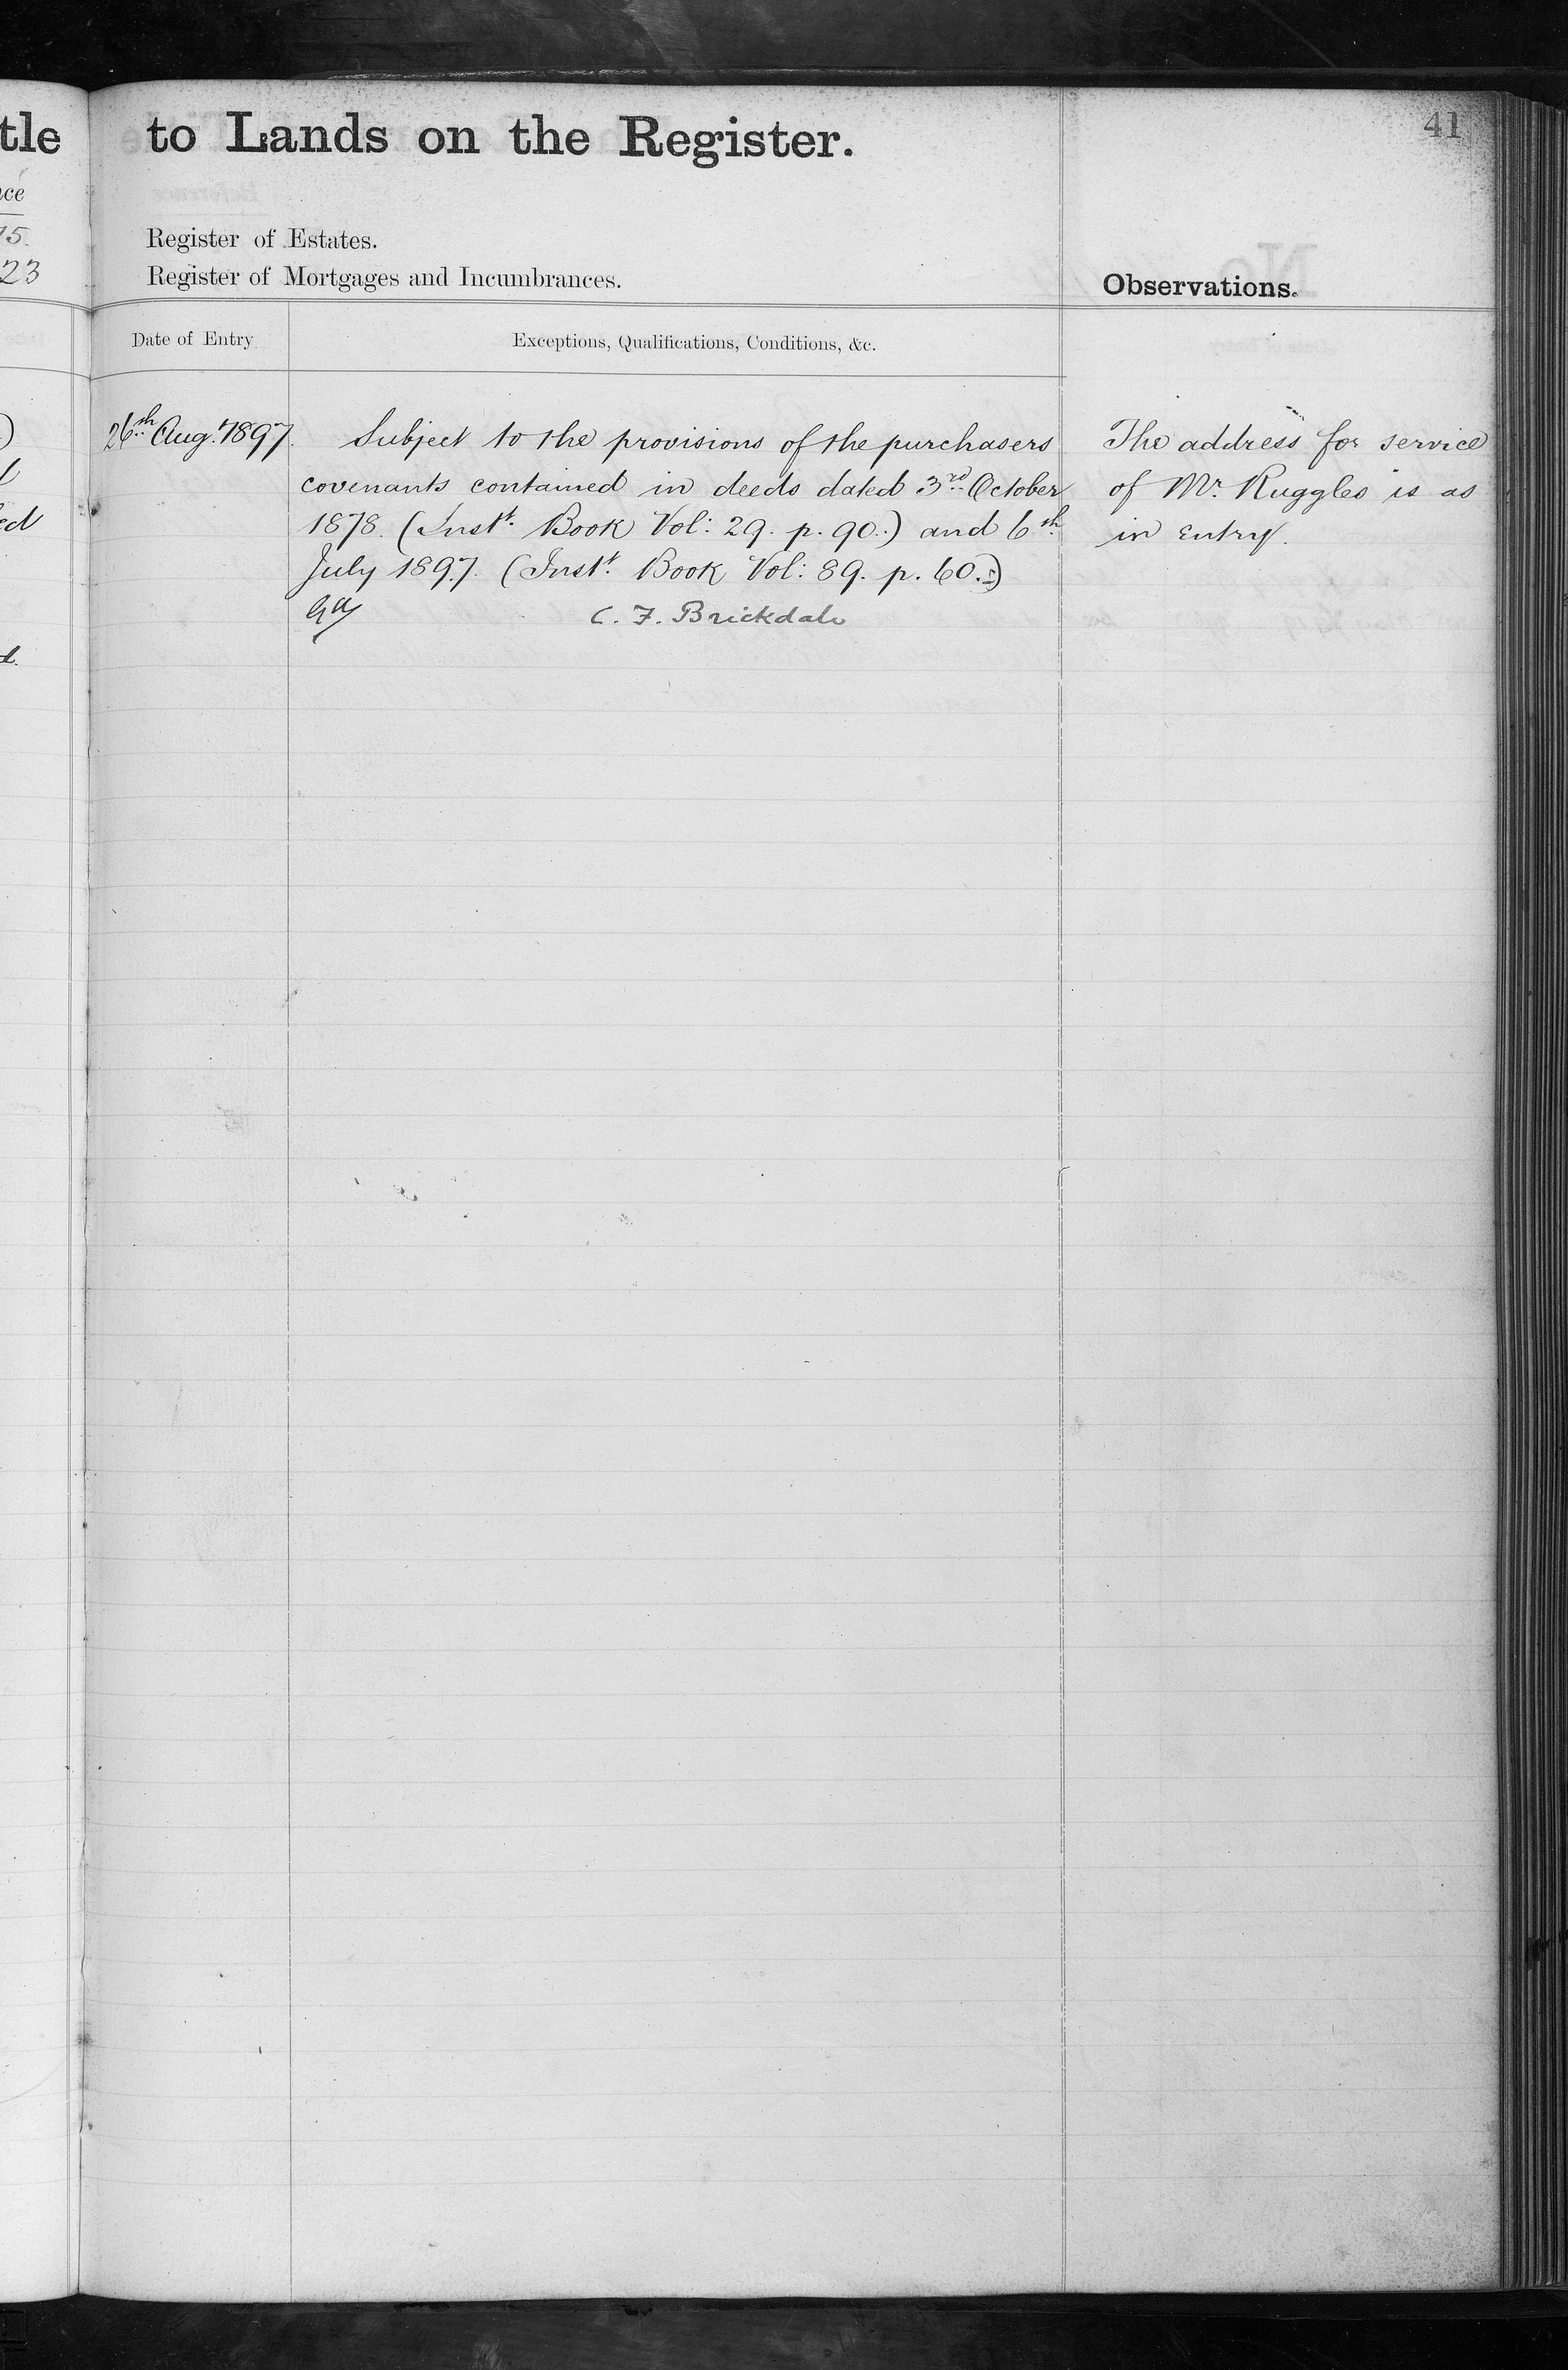 tle to Lands on the Register.
41
ce
15.
23
Register of Estates.
Register of Mortgages and Incumbrances.
Observations.
Date of Entry
Exceptions, Qualifications, Conditions, &c.
26th Aug. 1897.
Subject to the provisions of the purchasers
covenants contained in deeds dated 3rd October
1878. (Instt. Book Vol: 29. p. 90.) and 6th
July 1897. (Instt. Book Vol: 89. p. 60.)
C. F. Brickdale
The address for service
of Mr. Ruggles is as
in entry.